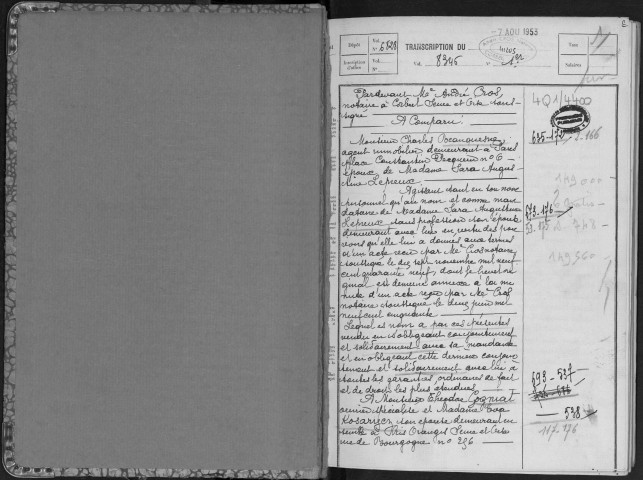 2
7 AOU 1953
Dépôt
Vol.
N° 6828
TRANSCRIPTION DU
Vol. 8346
N° 1er
Taxe
Salaires
Inscription
d'office
Pardevant Me André Cros,
notaire à Seine et Oise sous-
signé
A Comparu :
Monsieur Charles
agent immobilier demeurant à
Place Constantin Pecqueur n° 6 —
époux de Madame Sara Augus-
tine Lepreux
Agissant tant en son nom
personnel qu'au nom et comme man-
dataire de Madame Sara Augustine
Lepreux sans profession son épouse
demeurant avec lui en vertu des pou-
voirs qu'elle lui a donnés aux termes
d'un acte reçu par Me Cros notaire
soussigné le dix sept novembre mil neuf
cent quarante neuf, dont le brevet ori-
ginal est demeuré annexé à la mi-
nute d'un acte reçu par Me Cros
notaire soussigné le juin mil
neuf cent cinquante
Lequel es nom a par ces présentes
vendu en s'obligeant conjointement
et solidairement avec sa mandante
et en obligeant cette dernière conjoin-
tement et solidairement avec lui à
toutes les garanties ordinaires de fait
et de droit les plus étendues
A Monsieur Théodore Cogniat
ouvrier spécialisé et Madame Eva
son épouse demeurant en-
semble à Ris Orangis Seine et Oise
de Bourgogne n° 296
4Q1/4400
635-172
149000
673-176
149360
693-537
538
117 176